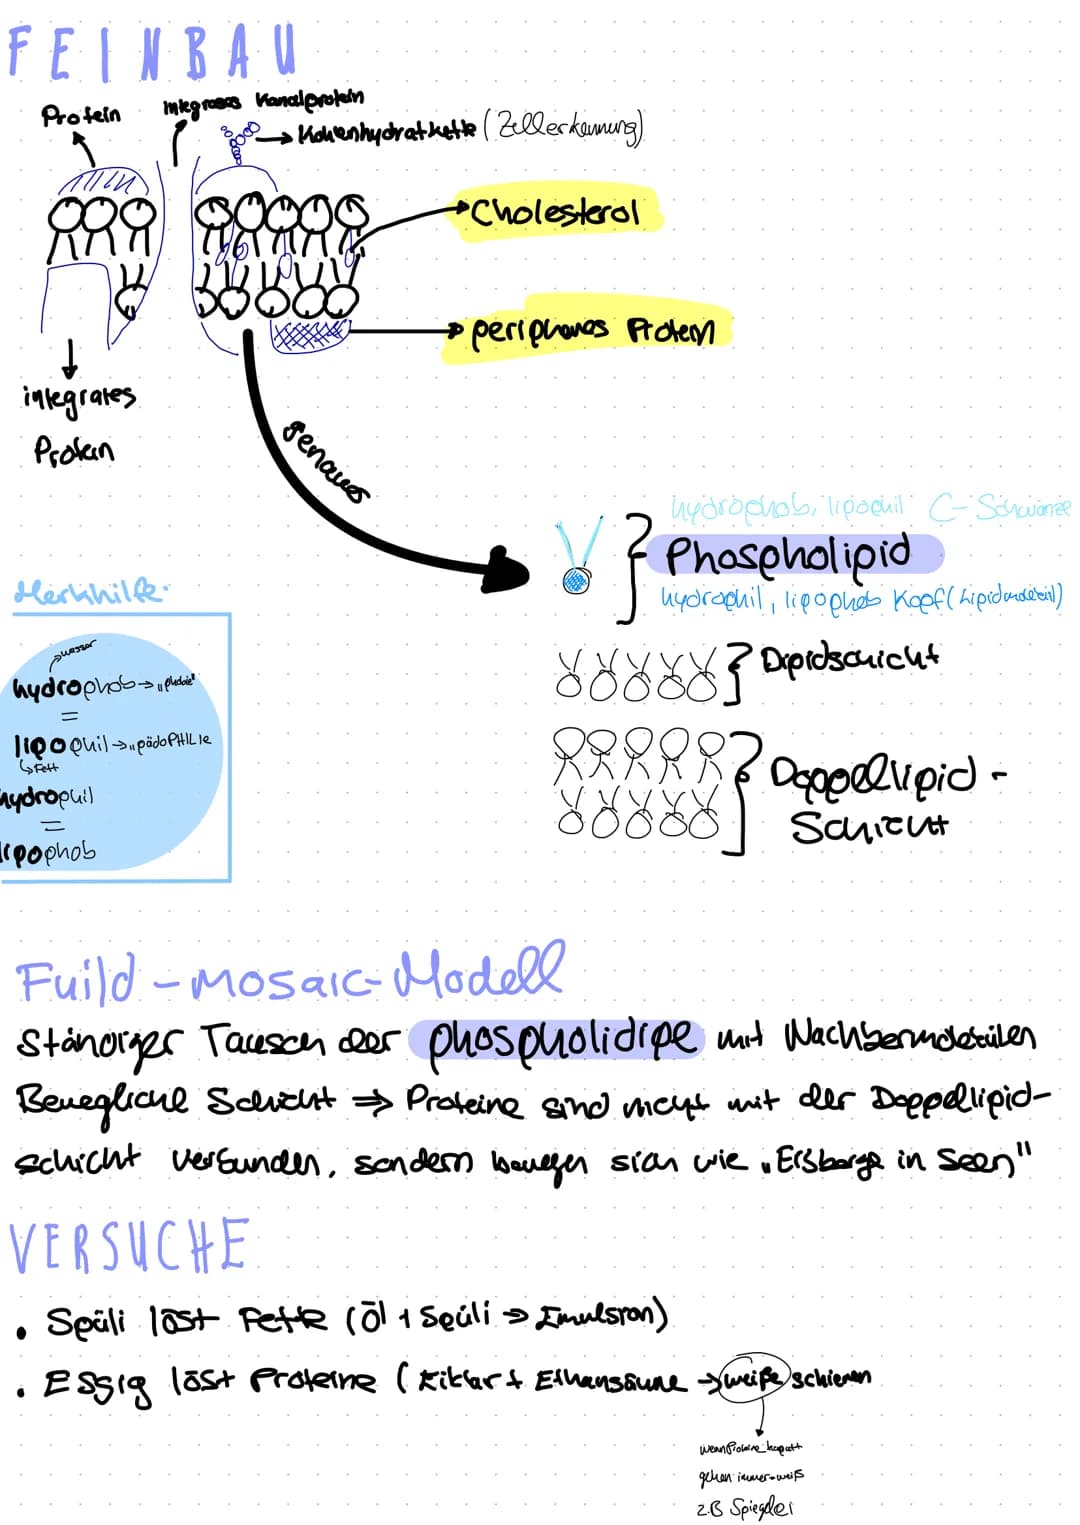 FEINBAU
Protein
integrales Kanalprotein
Kohlenhydratkette (Zellerkennung)
Cholesterol
peripheres Protein
integrales
Protein
genaues
hydrophob, lipophil C-Schwänze
Phospholipid
hydrophil, lipophob Kopf (Lipidmolekül)
Merkhilfe:
wasser
hydrophob → "phobie"
=
lipophil → "pädoPHILIE
↳ Fett
hydrophil
=
lipophob
Dipidschicht
Doppellipid-
Schicht
Fuild-mosaic-Modell
Ständiger Tausch der phospholidipe mit Nachbarmolekülen
Bewegliche Schicht ⇒ Proteine sind nicht mit der Doppellipid-
schicht verbunden, sondern bewegen sich wie "Eisberge in Seen"
VERSUCHE
• Spüli löst Fette (Öl + Spüli → Emulsion)
• Essig löst Proteine (Eiklar + Ethansäure → weiße schlieren
wenn Proteine kaputt
gehen immer weiß
z.B Spiegelei